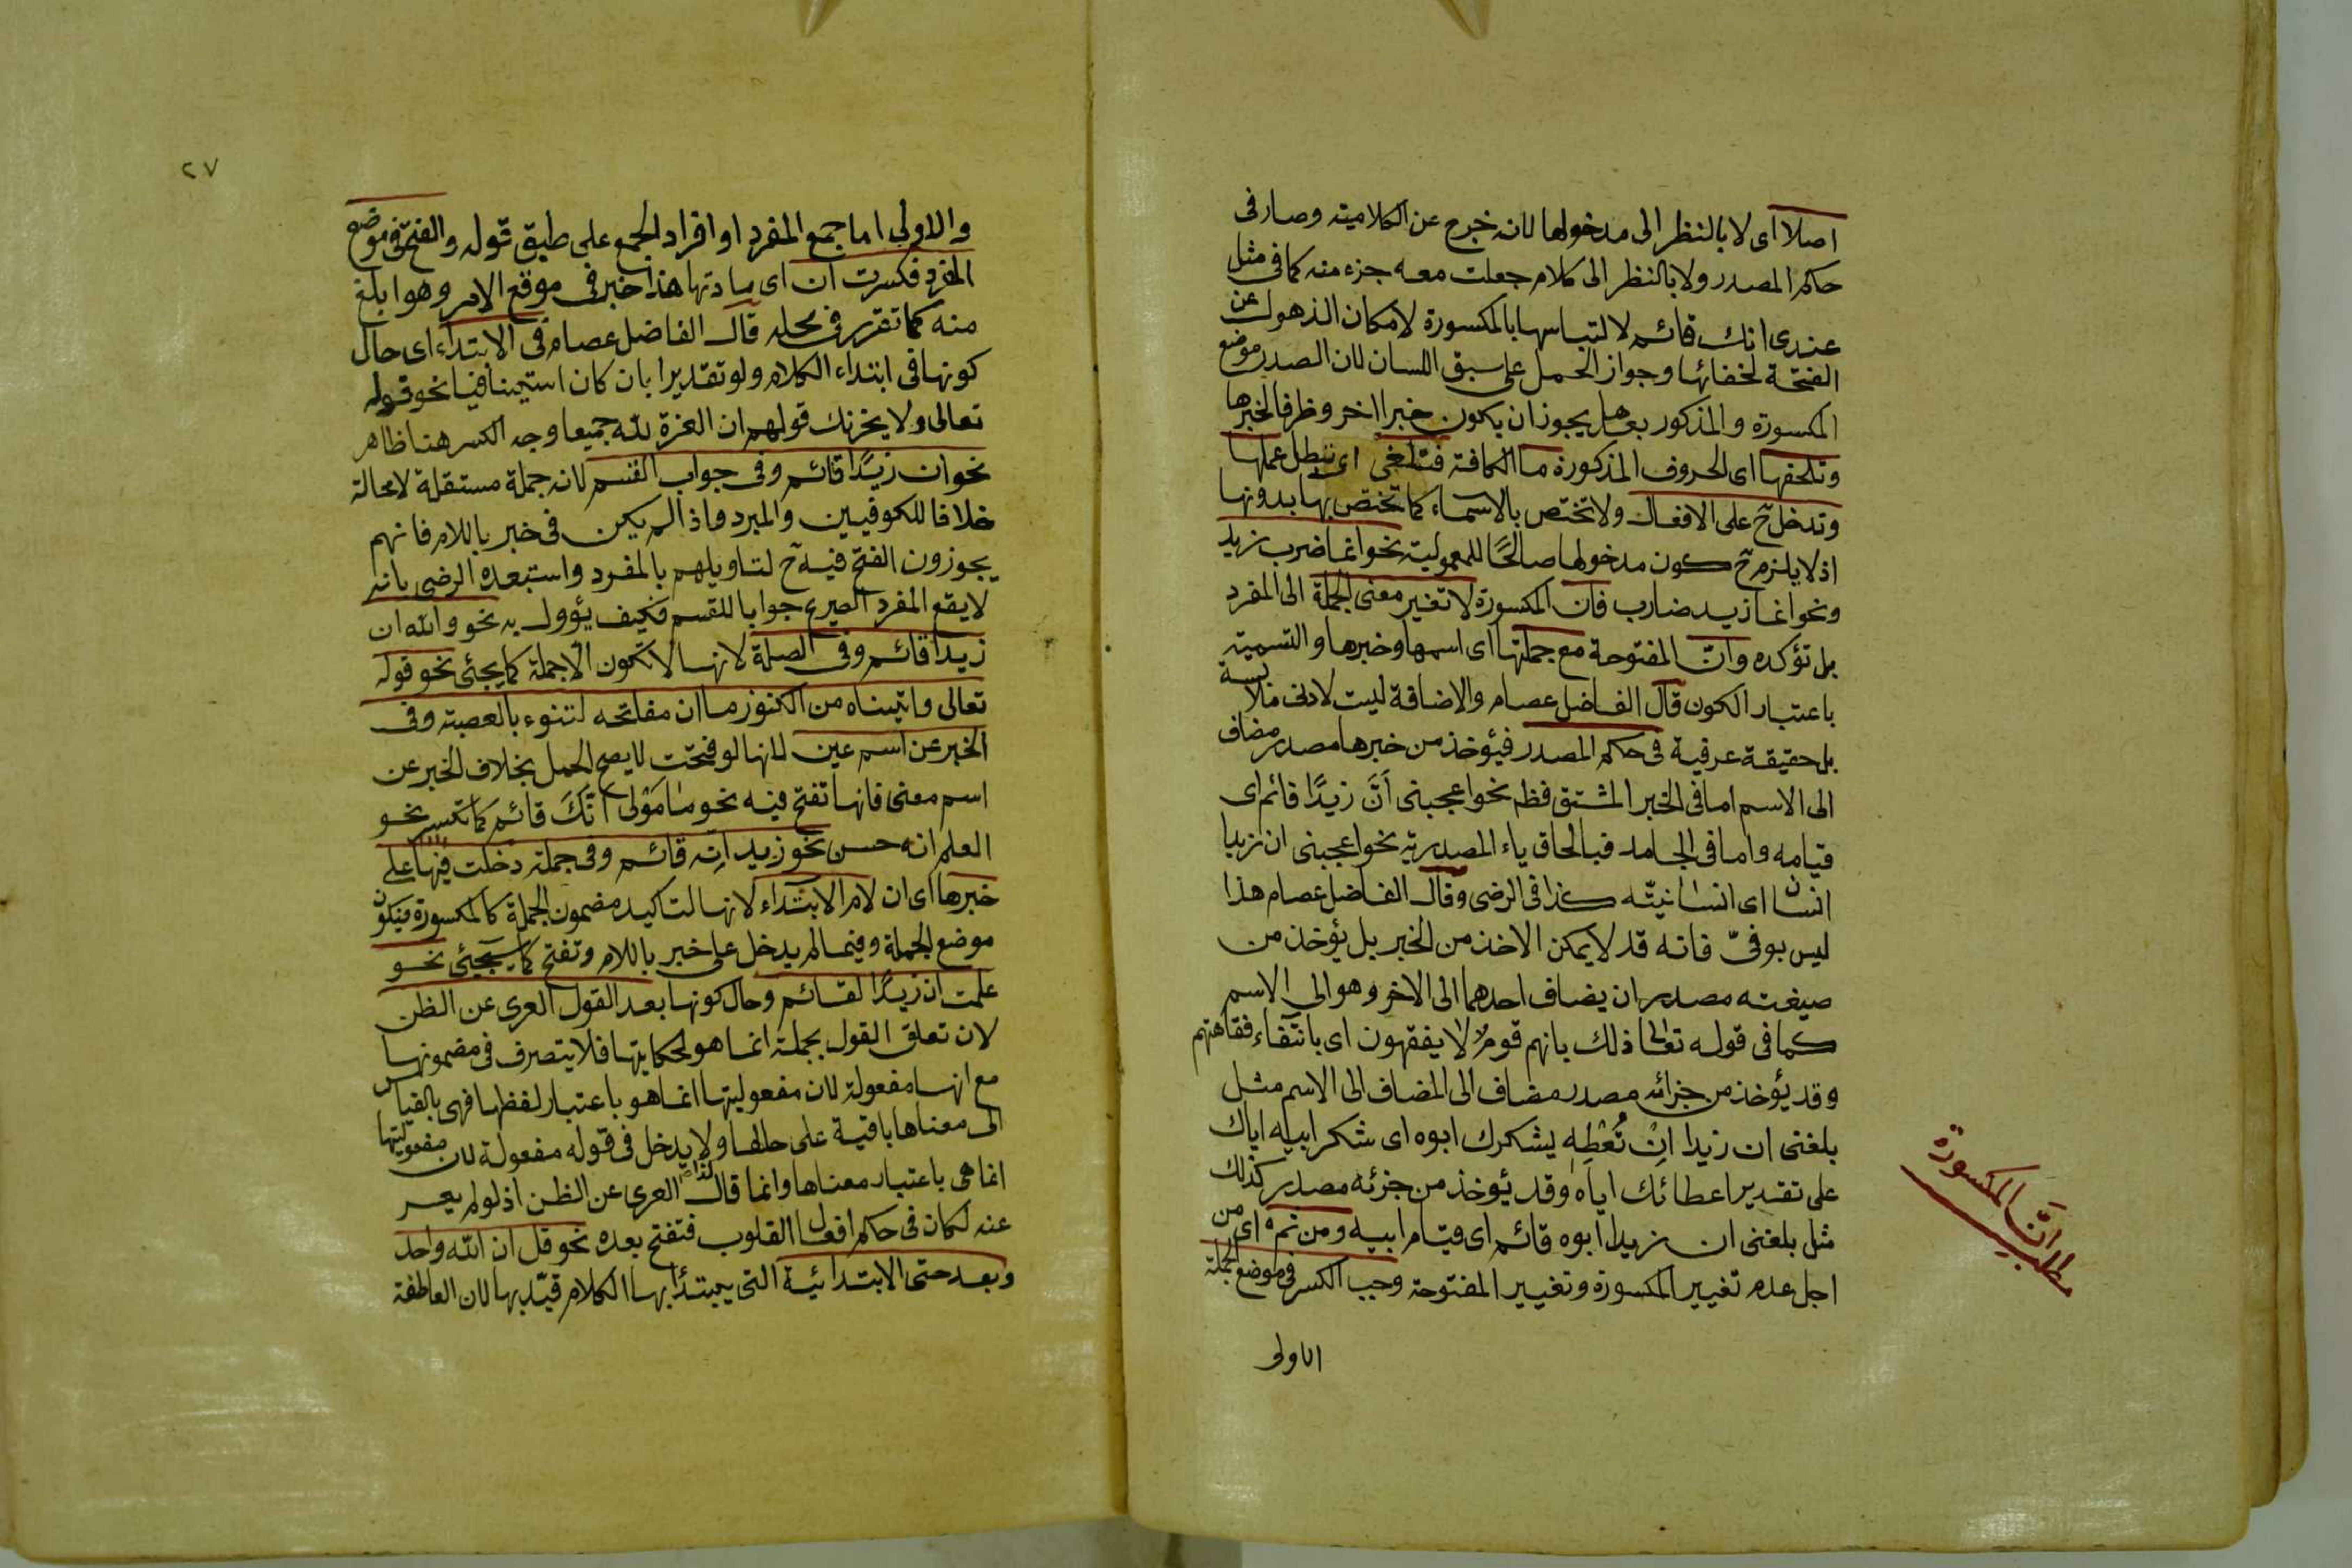 اصلا اى لا بالنظر الى مدخولها لانه خرج عن الكلامية وصار فى
حكم المصدر ولا بالنظر الى كلام جعلت معه جزء منه كما فى مثل
عندى انك قائم لالتباسها بالمكسورة لامكان الذهول عن
الفتحة لخفائها وجواز الحمل على سبق اللسان لان الصدر موضع
المكسورة والمذكور بعدها يجوز ان يكون خبرا اخر وظرفا لخبرها
وتلحقها اى الحروف المذكورة ما الكافة فتلغى اى تبطل عملها
وتدخل ح على الافعال ولا تختص بالاسماء كما تختص بها بدونها
اذ لا يلزم ح كون مدخولها صالحًا للمعمولية نحو انما ضرب زيد
ونحو انما زيد ضارب فان المكسورة لا تغير معنى الجملة الى المفرد
بل تؤكده وانّ المفتوحة مع جملتها اى اسمها وخبرها والتسمية
باعتبار الكون قال الفاضل عصام والاضافة ليست لادنى ملابسة
بل حقيقة عرفية فى حكم المصدر فيؤخذ من خبرها مصدر مضاف
الى الاسم اما فى الخبر المشتق فظ نحو اعجبنى اَنَّ زيدًا قائم اى
قيامه واما فى الجامد فبالحاق ياء المصدرية نحو اعجبنى ان زيدا
انسان اى انسانيّته كذا فى الرضى وقال الفاضل عصام هذا
ليس بوفىّ فانه قد لا يمكن الاخذ من الخبر بل يؤخذ من
صيغته مصدر ان يضاف احدهما الى الاخر وهو الى الاسم
كما فى قوله تعالى ذلك بانهم قوم لا يفقهون اى بانتفاء فقاهتهم
وقد يؤخذ من جزائه مصدر مضاف الى المضاف الى الاسم مثل
بلغنى ان زيدا اِنْ تُعْطِهِ يشكرك ابوه اى شكر ابيه اياك
على تقدير اعطائك اياه وقد يؤخذ من جزئه مصدر كذلك
مثل بلغنى ان زيدا ابوه قائم اى قيام ابيه ومن ثمه اى من
اجل عدم تغيير المكسورة وتغيير المفتوحة وجب الكسر فى موضع الجملة
الاولى
مطلب انّ المكسورة
٢٧
والاولى اما جمع المفرد او افراد الجمع على طبق قوله والفتح فى موضع
المفرد فكسرت ان اى مادتها هذا خبر فى موقع الامر وهو ابلغ
منه كما تقرر فى محله قال الفاضل عصام فى الابتداء اى حال
كونها فى ابتداء الكلام ولو تقديرا بان كان استينافيا نحو قوله
تعالى ولا يحزنك قولهم ان العزة لله جميعا وجه الكسر هنا ظاهر
نحو ان زيدًا قائم وفى جواب القسم لانه جملة مستقلة لا محالة
خلافا للكوفيين والمبرد فاذا لم يكن فى خبر باللام فانهم
يجوزون الفتح فيه ح لتاويلهم بالمفرد واستبعده الرضى بانه
لا يقع المفرد الصريح جوابا للقسم فكيف يؤول به نحو والله ان
زيدا قائم وفى الصلة لانها لا تكون الا جملة كما يجئى نحو قوله
تعالى واتيناه من الكنوز ما ان مفاتحه لتنوء بالعصبة وفى
الخبر عن اسم عين لانها لو فتحت لا يصح الحمل بخلاف الخبر عن
اسم معنى فانها تفتح فيه نحو مأمولى انّكَ قائم كما تكسر نحو
العلم انه حسن نحو زيد انه قائم وفى جملة دخلت فيها على
خبرها اى ان لام الابتداء لانها لتاكيد مضمون الجملة كالمكسورة فيكون
موضع الجملة وفيما لم يدخل على خبر باللام وتفتح كما سيجئى نحو
علمت ان زيدًا لقائم وحال كونها بعد القول العرى عن الظن
لان تعلق القول بجملة انما هو لحكايتها فلا يتصرف فى مضمونها
مع انها مفعولة لان مفعوليتها انما هو باعتبار لفظها فهى بالقياس
الى معناها باقية على حالها ولا يدخل فى قوله مفعولة لان مفعوليتها
انما هى باعتبار معناها وانما قال العرى عن الظن اذ لو لم يعر
عنه لكان فى حكم افعال القلوب فتفتح بعده نحو قل ان الله واحد
وبعد حتى الابتدائية التى يبتدأ بها الكلام قيّد بها لان العاطفة